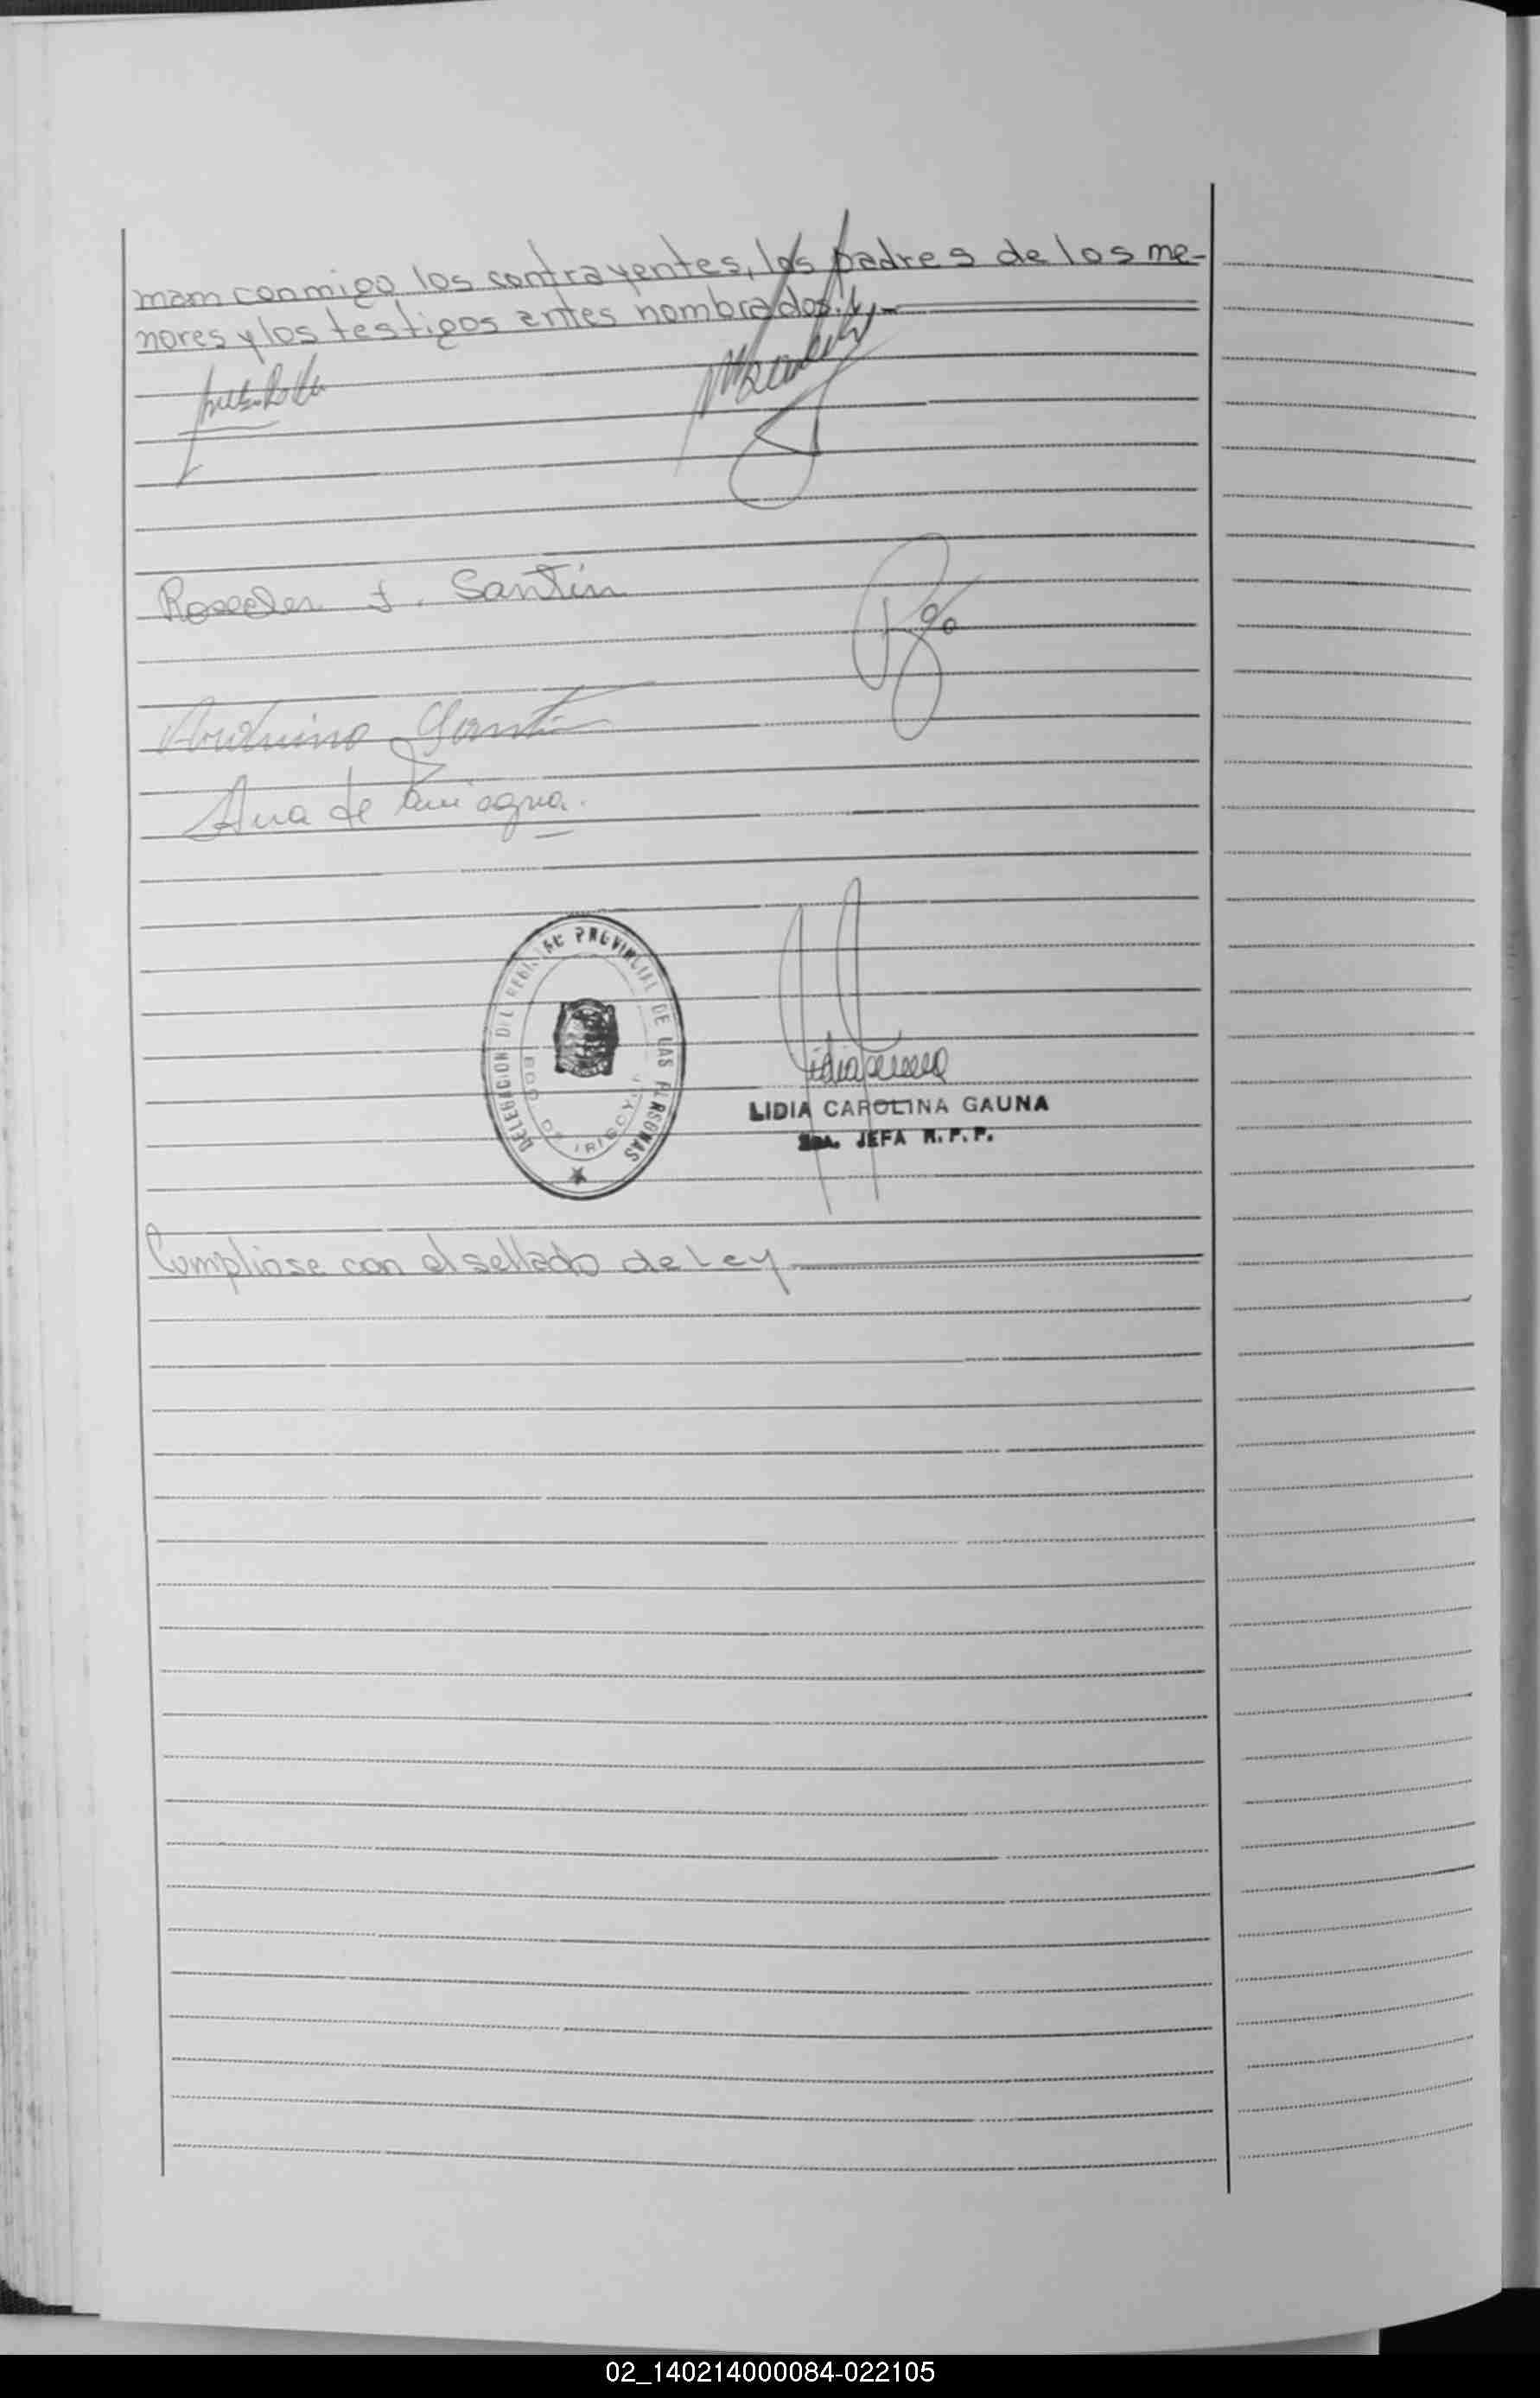 mam conmigo los contrayentes, los padres de los me-
nores y los testigos antes nombrados.-
Rosecler J. Santin
Arduino Santin
Ana de
DELEGACION DEL REGISTRO PROVINCIAL DE LAS PERSONAS
BDO DE IRIGOYEN
LIDIA CAROLINA GAUNA
JEFA R.P.P.
Cumpliose con el sellado de Ley
02_140214000084-022105